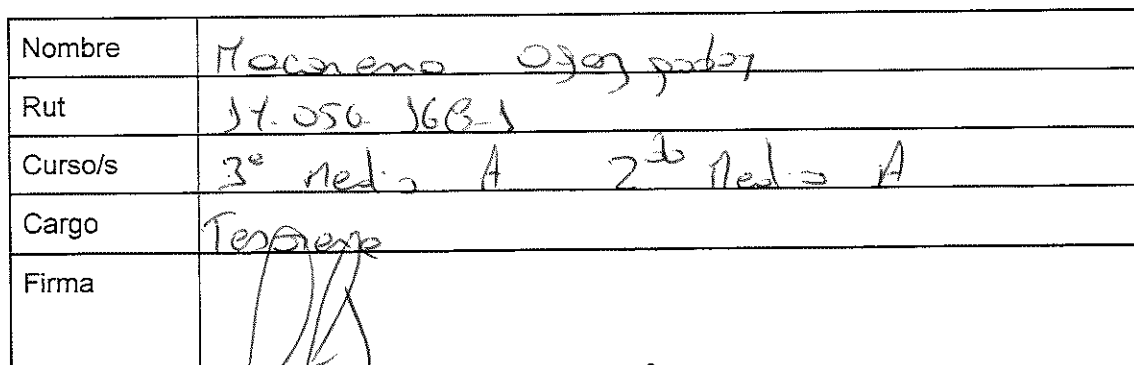 Nombre Macarena
Rut
Curso/s 3° Medio A 2do Medio A
Cargo Tesorera
Firma